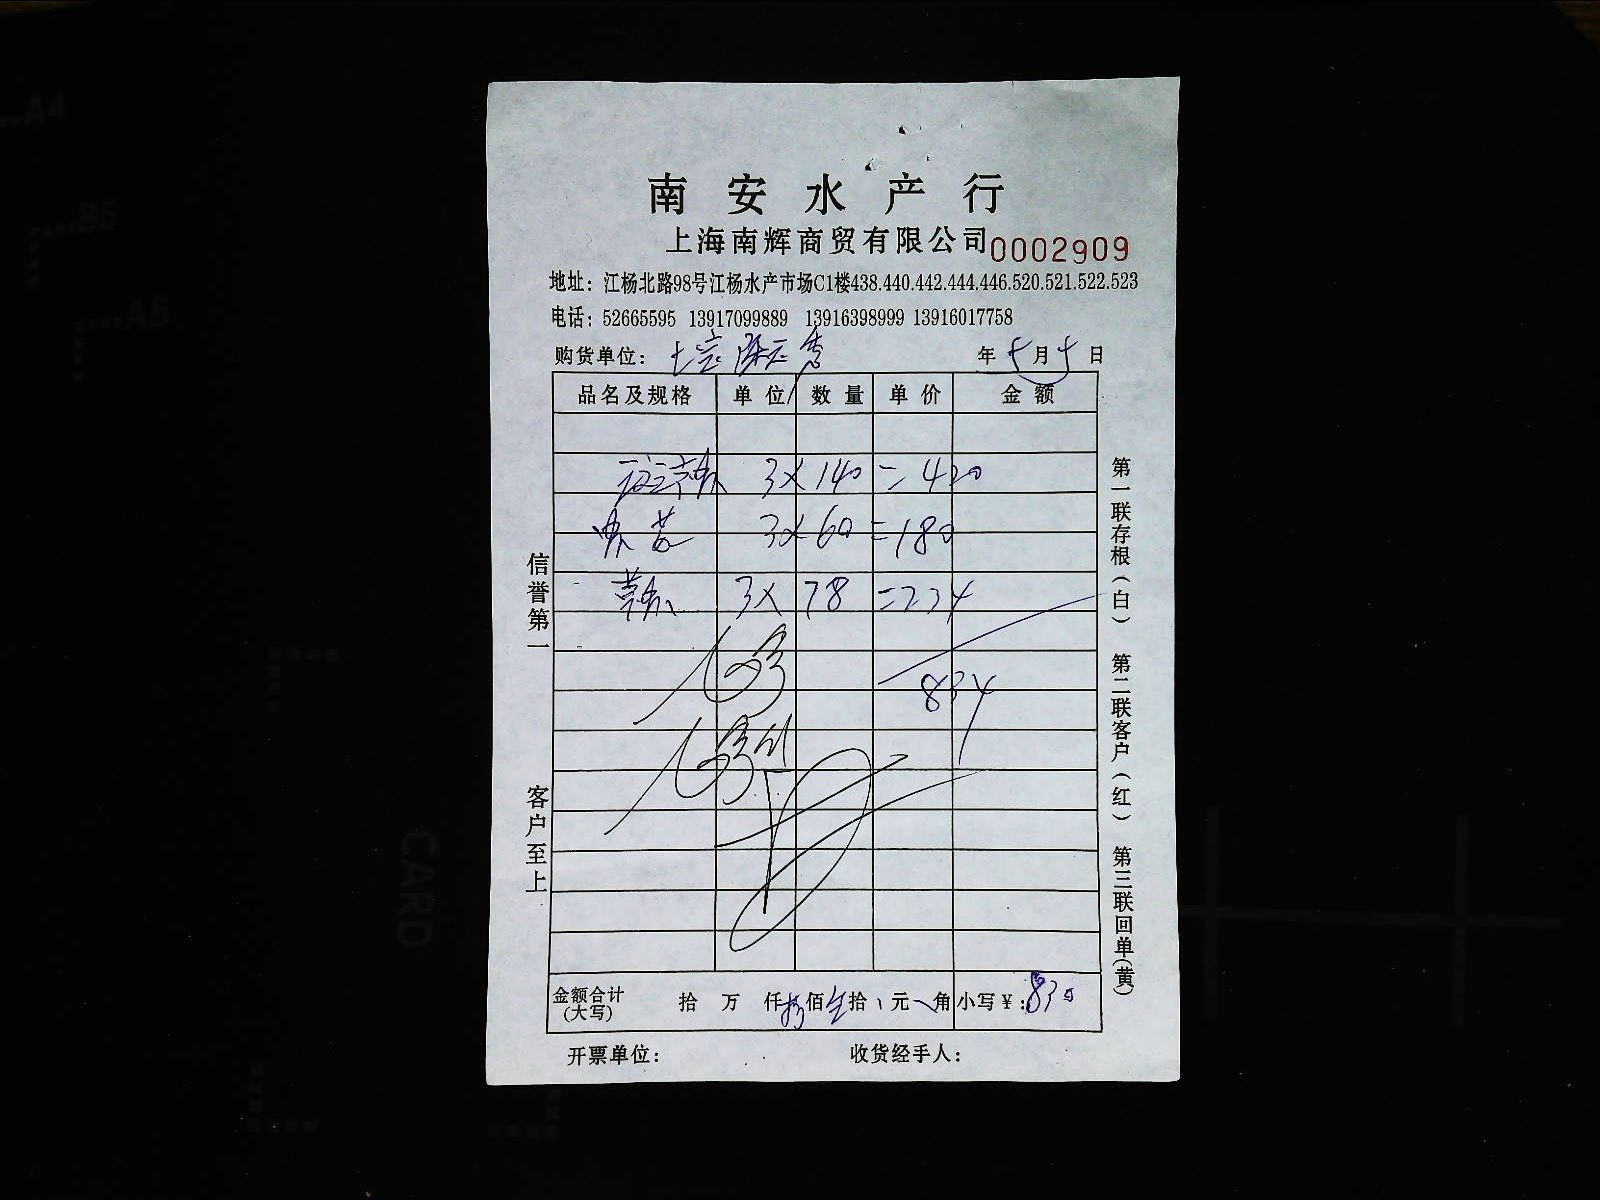 南安水产行
上海南辉商贸有限公司 0002909
地址：江杨北路98号江杨水产市场C1楼438.440.442.444.446.520.521.522.523
电话：52665595 13917099889 13916398999 13916017758
购货单位： 年 月 日
品名及规格 单位 数量 单价 金额
3×140=420
3×60=180
3×78=234
834
金额合计(大写) 拾 万 仟 捌 佰 叁 拾 元 角 小写￥：830
开票单位： 收货经手人：
信誉第一
客户至上
第一联存根(白) 第二联客户(红) 第三联回单(黄)
A4
B5
A5
CARD